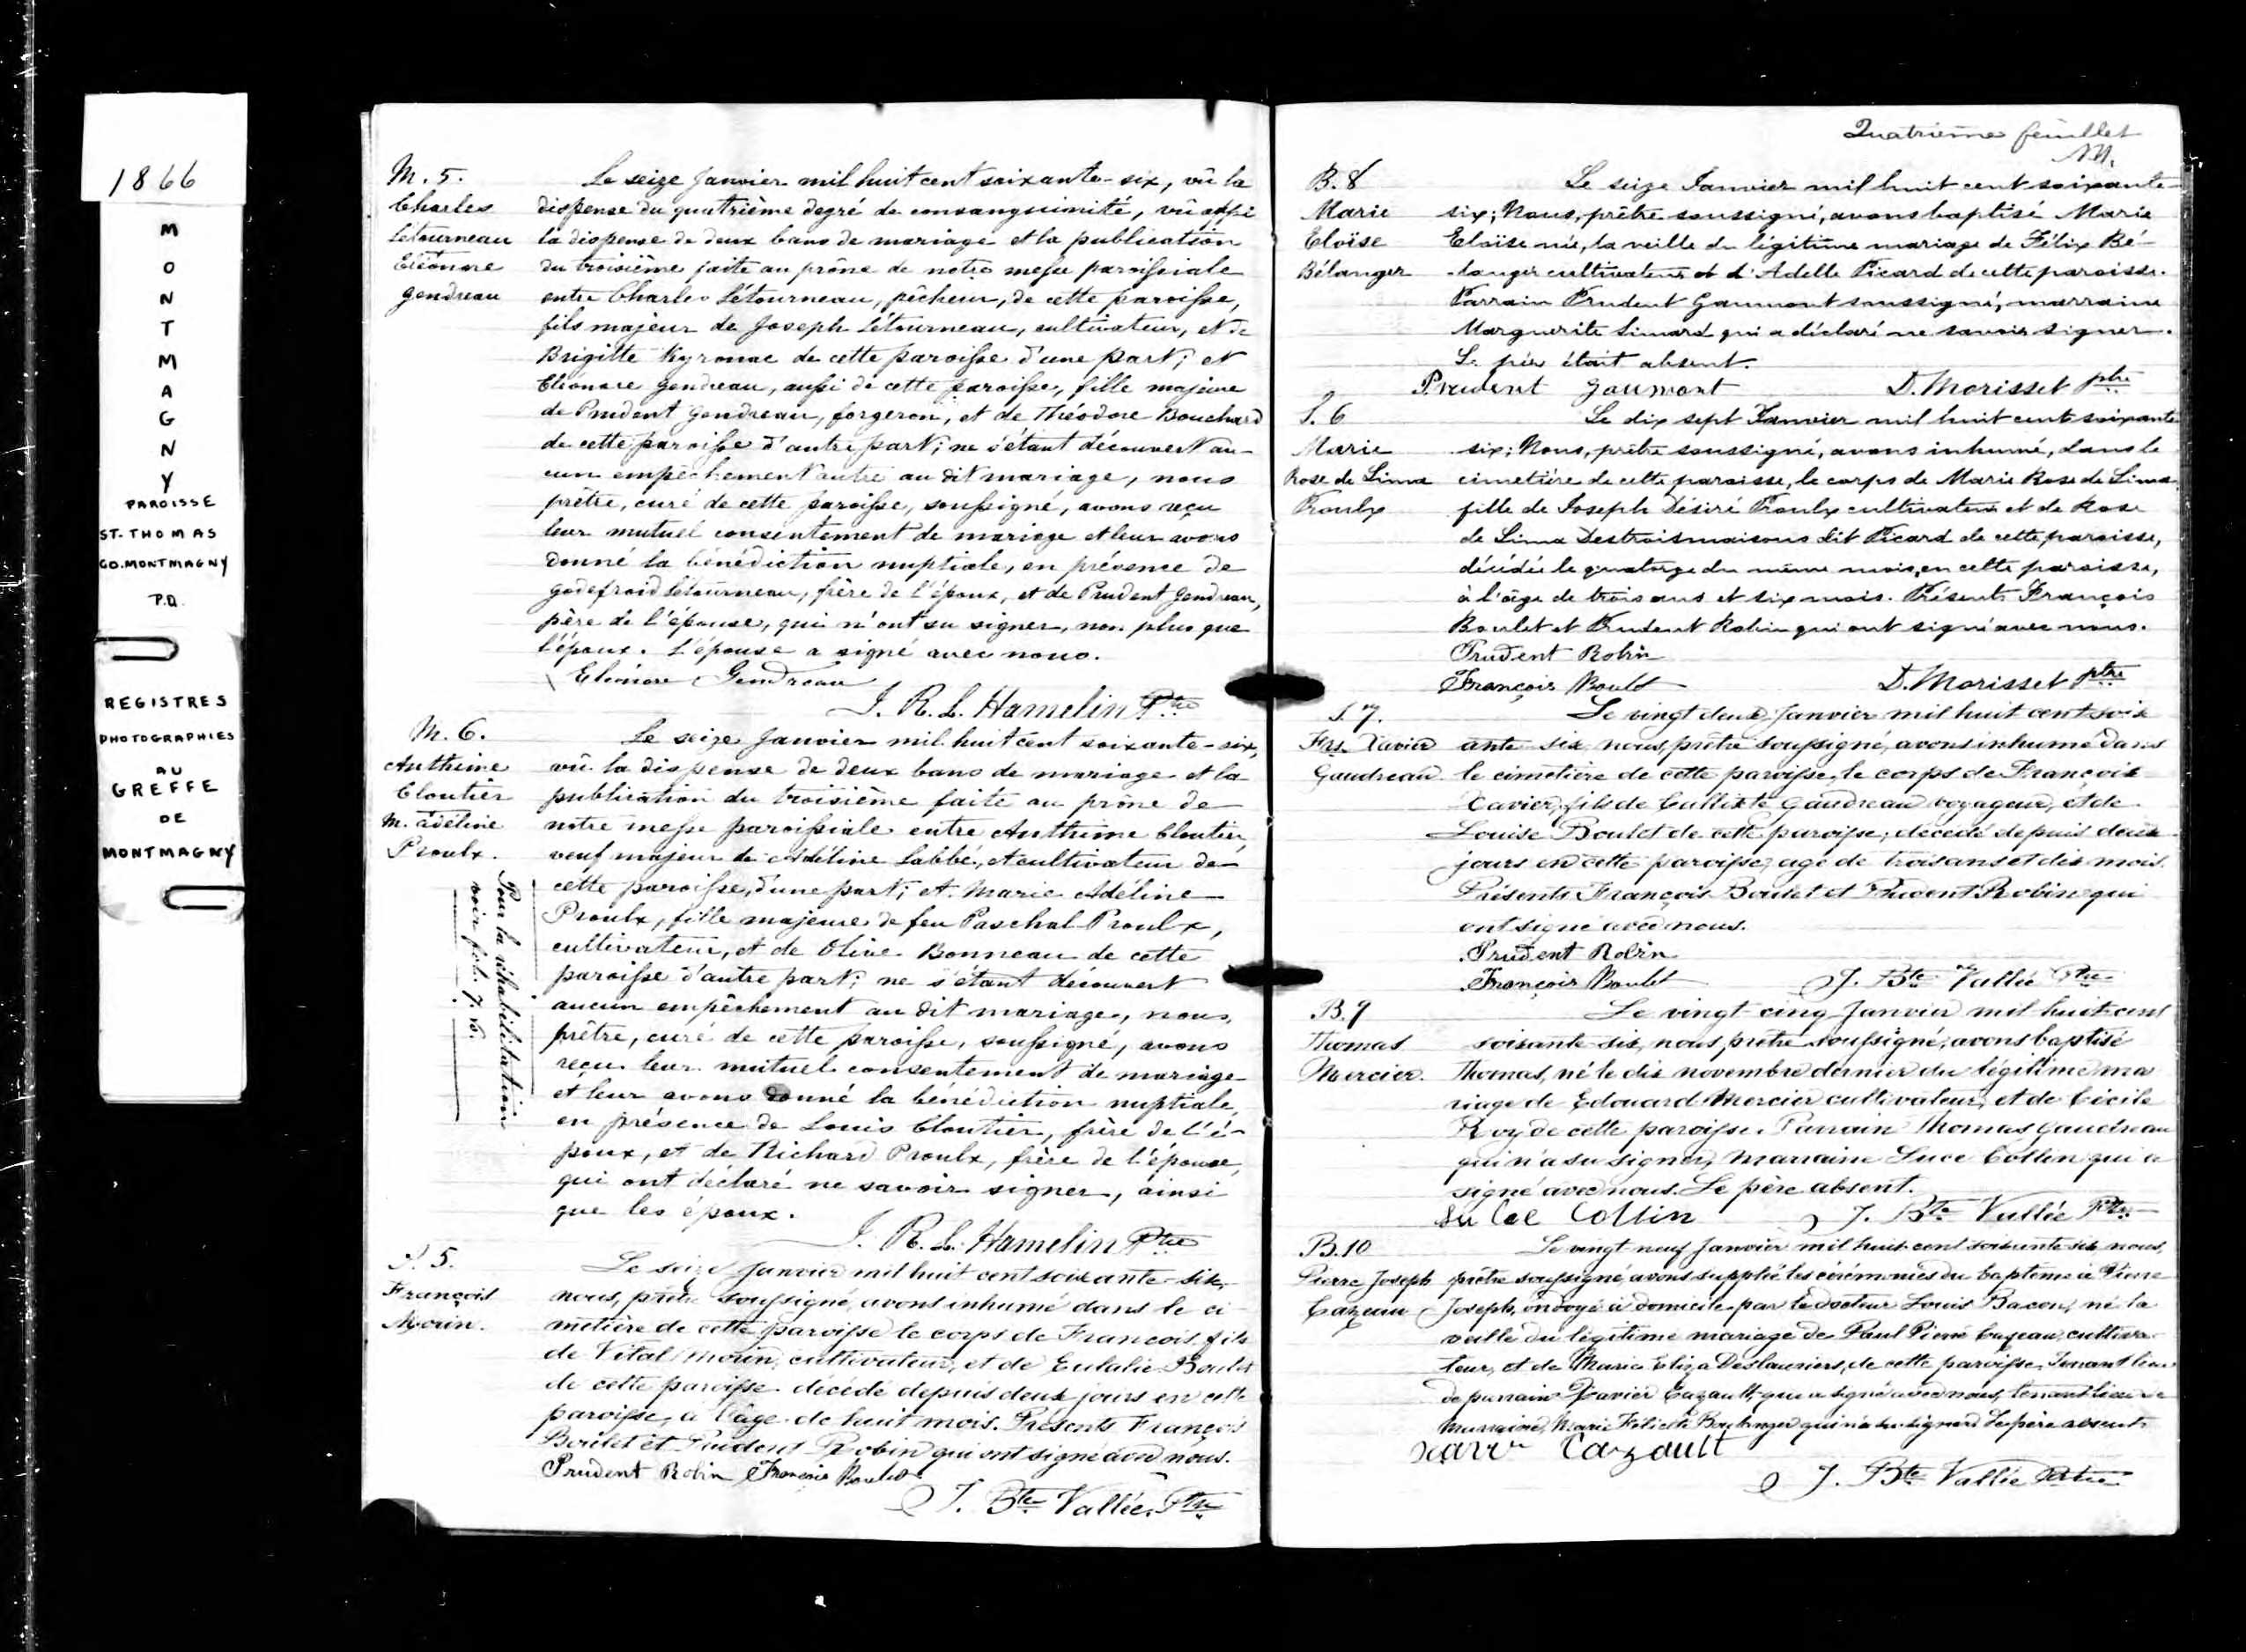 1866
M
O
N
T
M
A
G
N
Y
PAROISSE
ST. THOMAS
CO. MONTMAGNY
P.Q.
REGISTRES
PHOTOGRAPHIES
AU
GREFFE
DE
MONTMAGNY
M. 5.
Charles
Létourneau
Eléonore
Gendreau
Le seize Janvier mil huit cent soixante-six, vû la
dispense du quatrième degré de consanguinité, vû aussi
la dispense de deux bans de mariage et la publication
du troisième faite au prône de notre messe paroissiale
entre Charles Létourneau, pêcheur, de cette paroisse,
fils majeur de Joseph Létourneau, cultivateur, et de
Brigitte Kyronac de cette paroisse d'une part; et
Eléonore Gendreau, aussi de cette paroisse, fille majeure
de Prudent Gendreau, forgeron, et de Théodore Bouchard
de cette paroisse d'autre part; ne s'étant découvert au-
cun empêchement autre au dit mariage, nous
prêtre, curé de cette paroisse, soussigné, avons reçu
leur mutuel consentement de mariage et leur avons
donné la bénédiction nuptiale, en présence de
Godefroid Létourneau, frère de l'époux, et de Prudent Gendreau,
père de l'épouse, qui n'ont su signer, non plus que
l'époux. L'épouse a signé avec nous.
Eléonore Gendreau
J. R. L. Hamelin Ptre
M. 6.
Anthime
Cloutier
M. adéline
Proulx.
Pour la réhabilitation
voir fol. 7. v.
Le seize Janvier mil huit cent soixante-six,
vû la dispense de deux bans de mariage et la
publication du troisième faite au prône de
notre messe paroissiale entre Anthime Cloutier,
veuf majeur de Adéline Labbé, et cultivateur de
cette paroisse, d'une part; et Marie Adéline
Proulx, fille majeure de feu Paschal Proulx,
cultivateur, et de Olive Bonneau de cette
paroisse d'autre part; ne s'étant découvert
aucun empêchement au dit mariage, nous,
prêtre, curé de cette paroisse, soussigné, avons
reçu leur mutuel consentement de mariage
et leur avons donné la bénédiction nuptiale,
en présence de Louis Cloutier, frère de l'é-
poux, et de Richard Proulx, frère de l'épouse,
qui ont déclaré ne savoir signer, ainsi
que les époux.
J. R. L. Hamelin Ptre
S. 5.
François
Morin.
Le seize Janvier mil huit cent soixante-six,
nous, prêtre soussigné, avons inhumé dans le ci-
metière de cette paroisse le corps de François, fils
de Vital Morin, cultivateur, et de Eulalie Boulet
de cette paroisse, décédé depuis deux jours en cette
paroisse, à l'âge de huit mois. Présents François
Boulet et Prudent Robin qui ont signé avec nous.
Prudent Robin François Boulet
J. Bte Vallée, Ptre
Quatrième feuillet
B. 8
Marie
Eloïse
Bélanger
Le seize Janvier mil huit cent soixante-
six; Nous, prêtre soussigné, avons baptisé Marie
Eloïse née, la veille du légitime mariage de Félix Bé-
langer cultivateur et d'Adelle Picard de cette paroisse.
Parrain Prudent Gaumont soussigné, marraine
Marguerite Simard qui a déclaré ne savoir signer.
Le père était absent.
Prudent Gaumont D. Morisset ptre
S. 6
Marie
Rose de Lima
Proulx
Le dix sept Janvier mil huit cent soixante
six; Nous, prêtre soussigné, avons inhumé, dans le
cimetière de cette paroisse, le corps de Marie Rose de Lima
fille de Joseph Désiré Proulx cultivateur et de Rose
de Lima Destroismaisons dit Picard de cette paroisse,
décédée le quatorze du même mois, en cette paroisse,
à l'âge de trois ans et six mois. Présents François
Boulet et Prudent Robin qui ont signé avec nous.
Prudent Robin
François Boulet D. Morisset ptre
S. 7.
Frs. Xavier
Gaudreau
Le vingt deux Janvier mil huit cent soix
ante six, nous, prêtre soussigné, avons inhumé dans
le cimetière de cette paroisse, le corps de François
Xavier, fils de Callixte Gaudreau voyageur, et de
Louise Boulet de cette paroisse; décédé depuis deux
jours en cette paroisse, agé de trois ans et dix mois.
Présents François Boulet et Prudent Robin qui
ont signé avec nous.
Prudent Robin
François Boulet J. Bte Vallée Ptre
B. 9
Thomas
Mercier.
Le vingt-cinq Janvier mil huit cent
soixante six, nous, prêtre soussigné, avons baptisé
Thomas, né le dix novembre dernier du légitime ma
riage de Edouard Mercier cultivateur, et de Cécile
Roy de cette paroisse. Parrain Thomas Gaudreau
qui n'a su signer, Marraine Luce Collin qui a
signé avec nous. Le père absent.
Collin J. Bte Vallée Ptre
B. 10
Pierre Joseph
Cazeau
Le vingt neuf Janvier mil huit cent soixante six nous,
prêtre soussigné avons supplié les cérémonies du baptême à Pierre
Joseph, ondoyé à domicile par le docteur Louis Bacon, né la
veille du légitime mariage de Paul Pierre Cazeau, cultiva-
teur, et de Marie Eliza Deslauriers, de cette paroisse. Tenant lieu
de parrain Xavier Cazault, qui a signé avec nous, tenant lieu de
marraine, Marie Félicité Boulanger qui n'a su signer. Le père absent.
Cazault
J. Bte Vallée Ptre